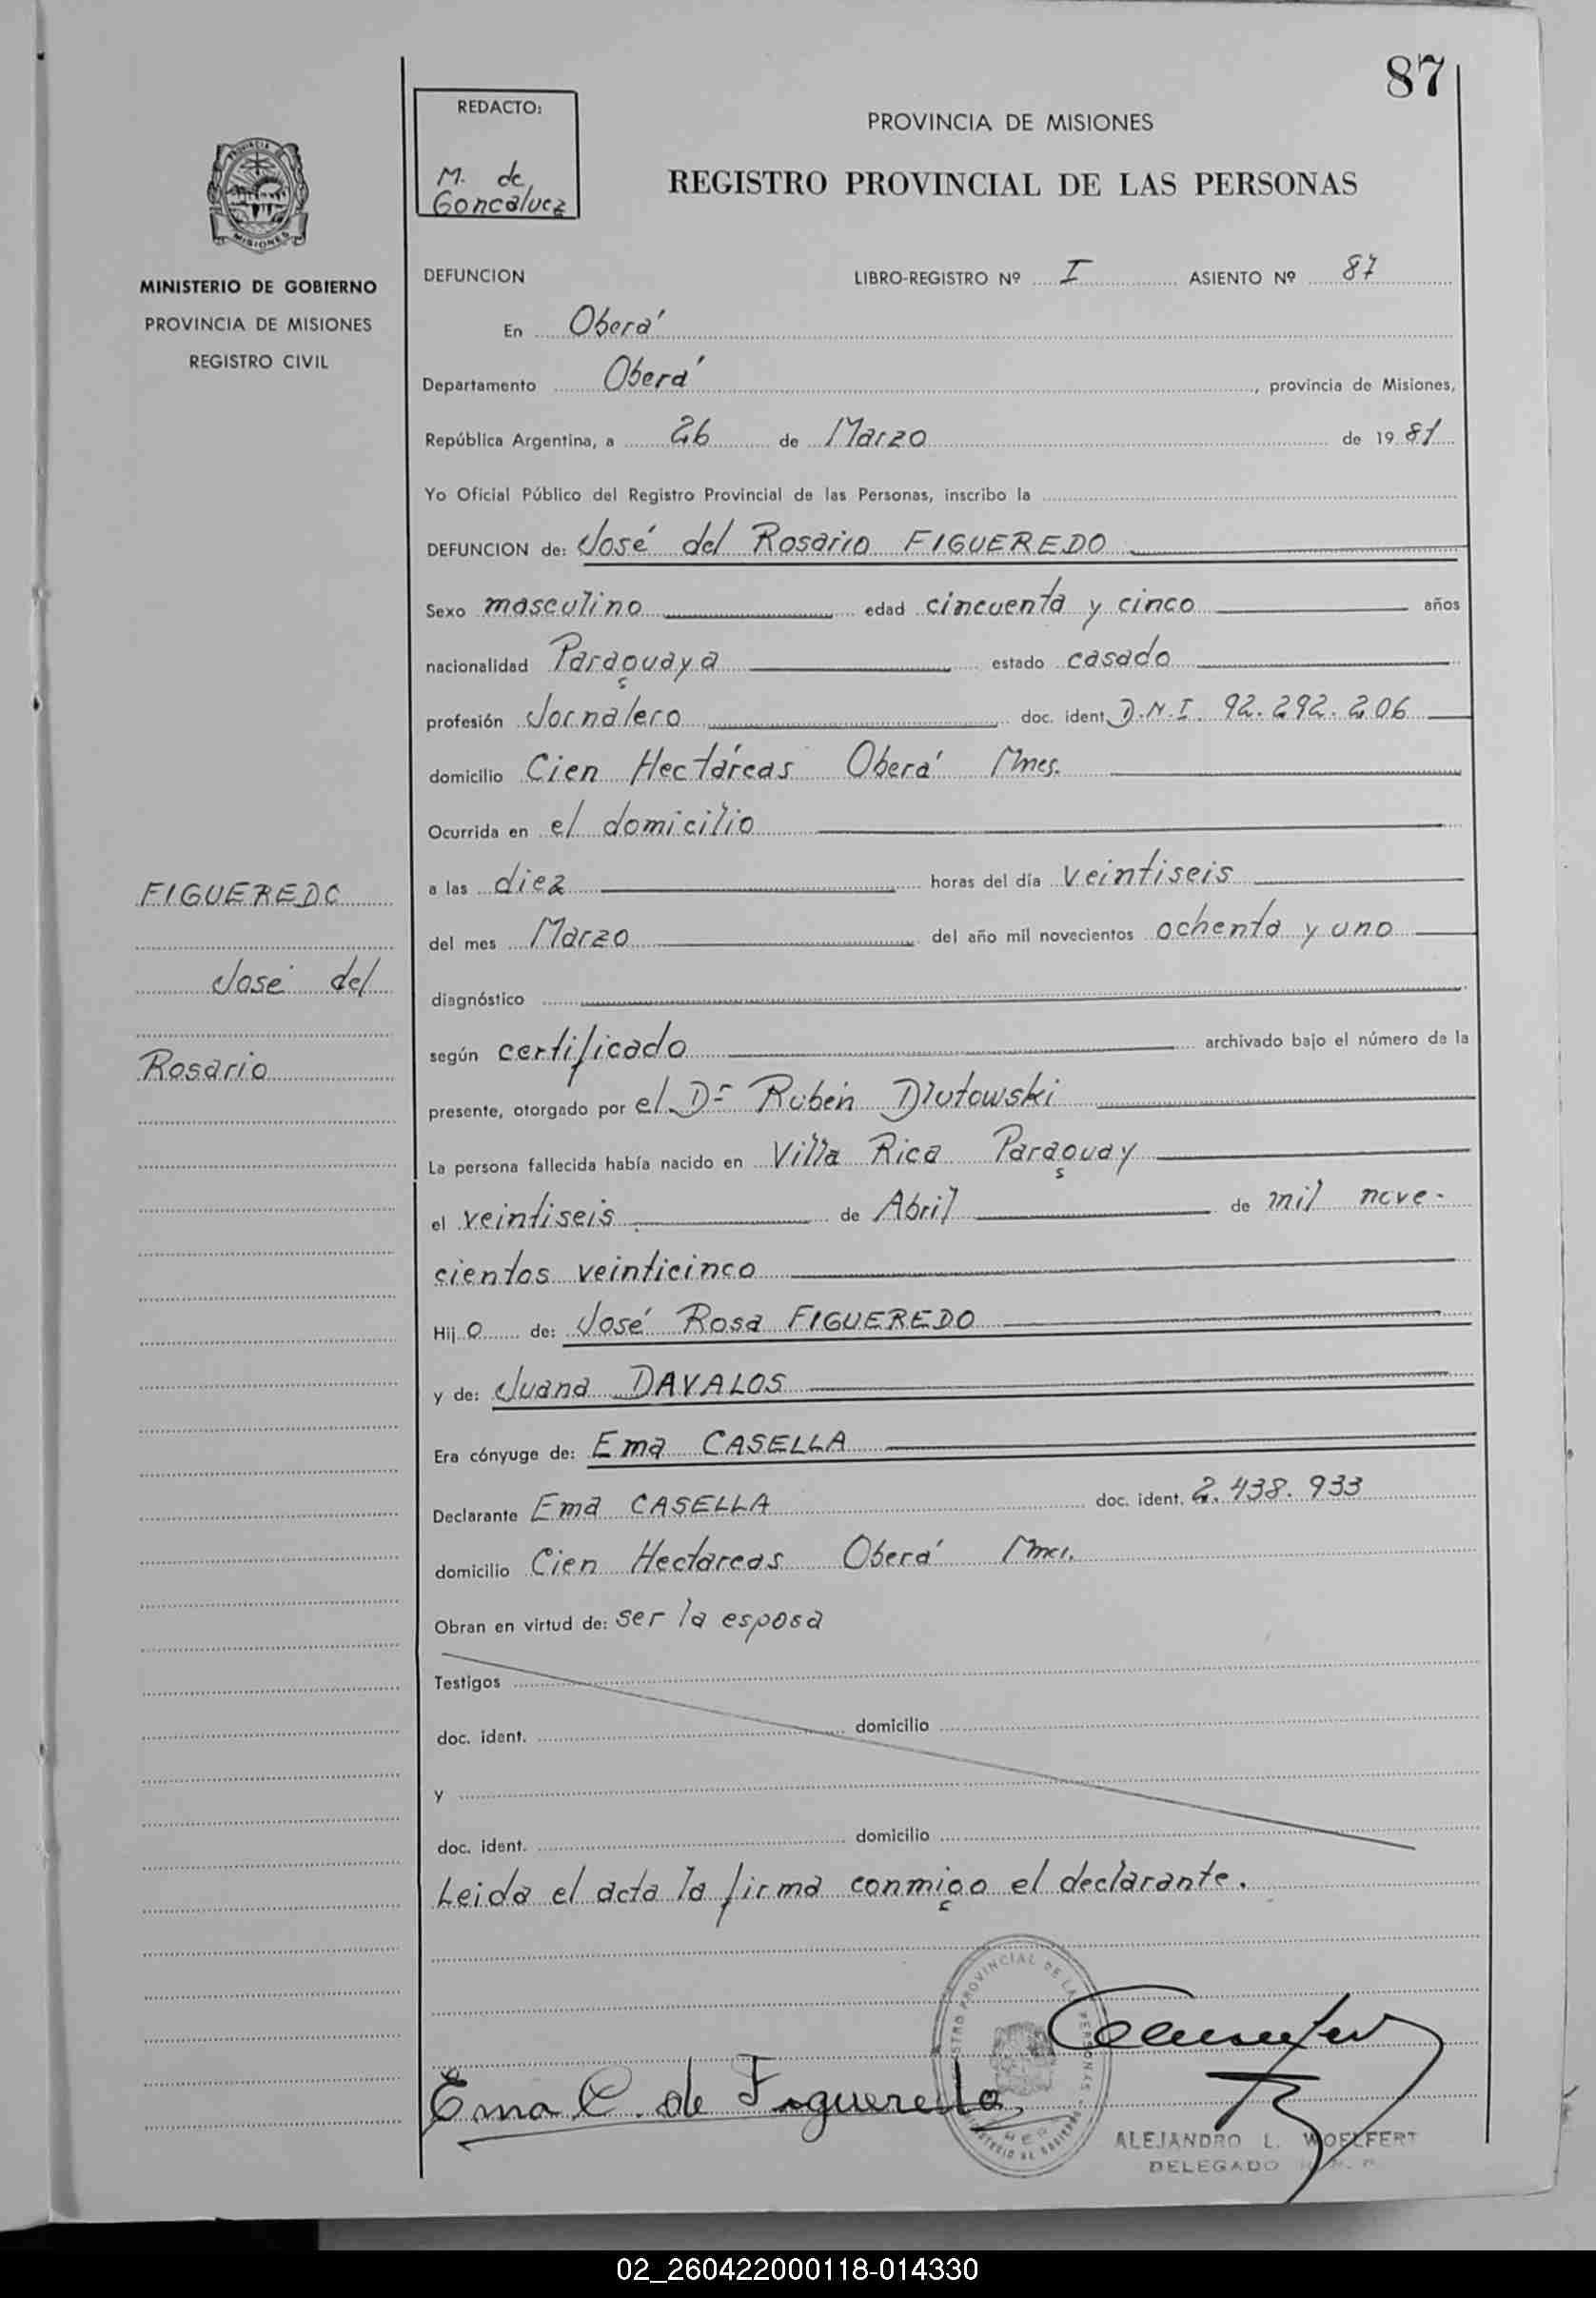 87
REDACTO:
M. de
Goncalvez
PROVINCIA DE MISIONES
REGISTRO PROVINCIAL DE LAS PERSONAS
PROVINCIA DE
MISIONES
MINISTERIO DE GOBIERNO
PROVINCIA DE MISIONES
REGISTRO CIVIL
DEFUNCION LIBRO-REGISTRO Nº I ASIENTO Nº 87
En Oberá
Departamento Oberá, provincia de Misiones,
República Argentina, a 26 de Marzo de 19 81
Yo Oficial Público del Registro Provincial de las Personas, inscribo la
DEFUNCION de: José del Rosario FIGUEREDO
Sexo masculino edad cincuenta y cinco años
nacionalidad Paraguaya estado casado
profesión Jornalero doc. ident. D.N.I. 92.292.206
domicilio Cien Hectáreas Oberá Mnes.
Ocurrida en el domicilio
a las diez horas del día veintiseis
del mes Marzo del año mil novecientos ochenta y uno
diagnóstico
según certificado archivado bajo el número de la
presente, otorgado por el Dr Rubén Dlutowski
La persona fallecida había nacido en Villa Rica Paraguay
el veintiseis de Abril de mil nove-
cientos veinticinco
Hij o de: José Rosa FIGUEREDO
y de: Juana DAVALOS
Era cónyuge de: Ema CASELLA
Declarante Ema CASELLA doc. ident. 2.438.933
domicilio Cien Hectareas Oberá Mnes.
Obran en virtud de: ser la esposa
Testigos
doc. ident. domicilio
y
doc. ident. domicilio
Leida el acta la firma conmigo el declarante.
FIGUEREDO
José del
Rosario
Ema C. de Figueredo
ALEJANDRO L. WOELFERT
DELEGADO
02_260422000118-014330